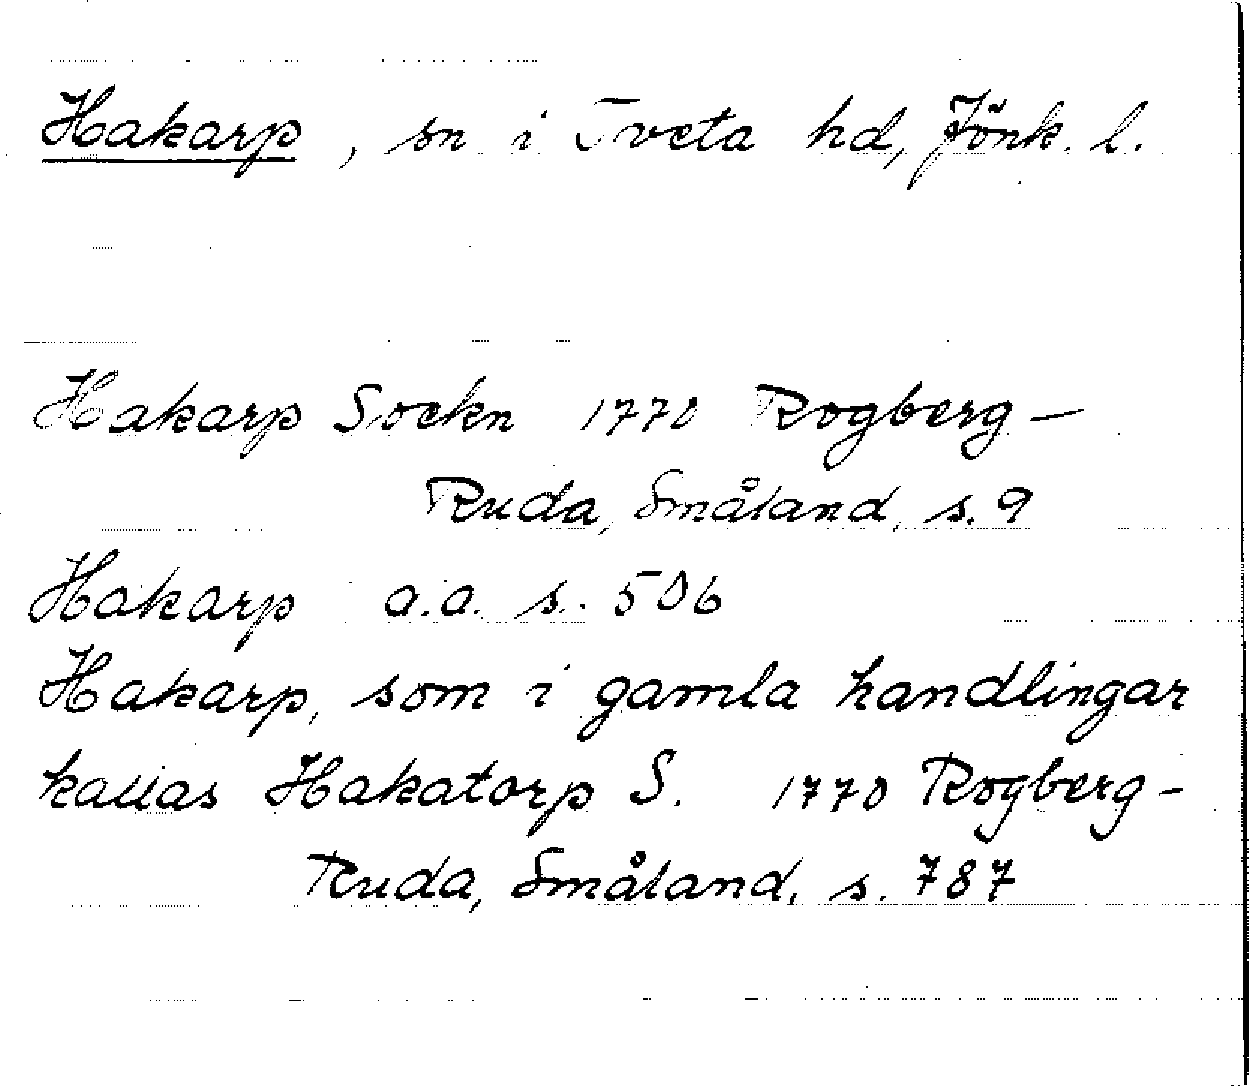 Hakarp, sn i Tveta hd, Jönk. l.
Hakarp Sockn 1770 Rogberg-
Ruda, Småland, s. 9
Hakarp a.a. s. 506
Hakarp, som i gamla handlingar
kallas Hakatorp S. 1770 Rogberg-
Ruda, Småland, s. 787